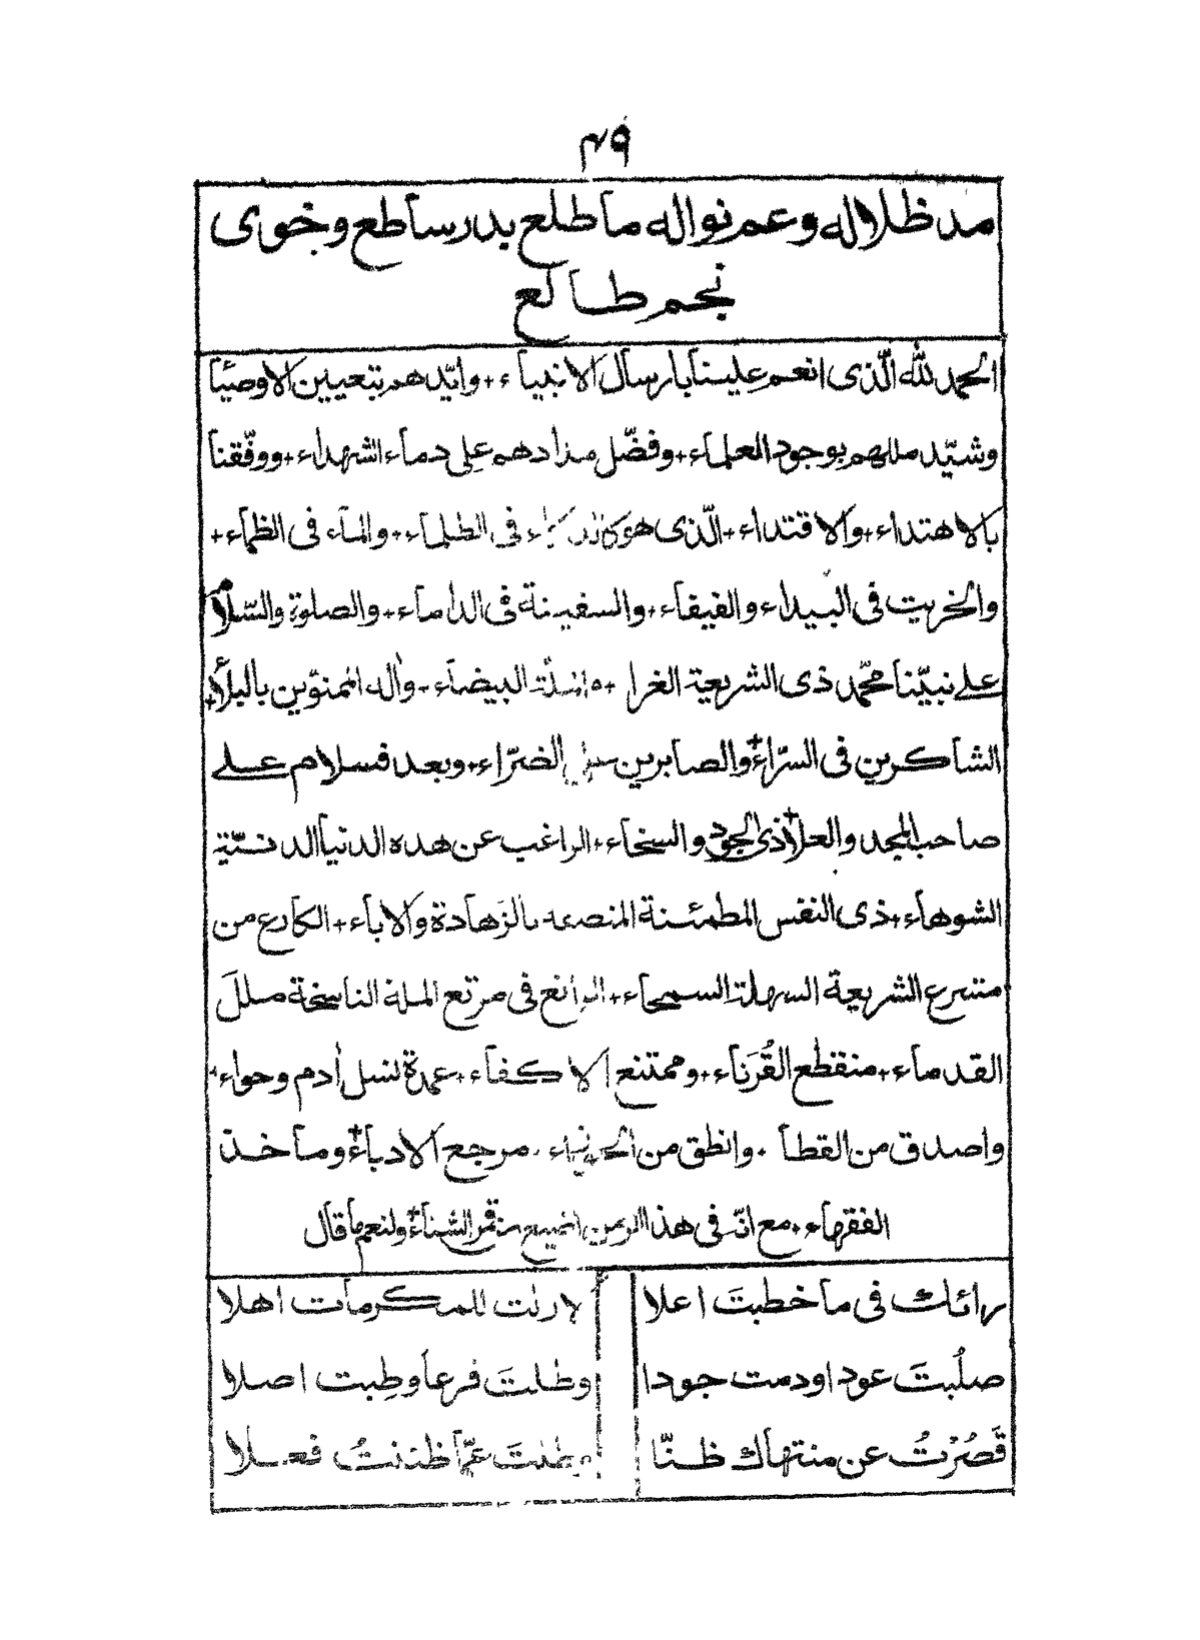 ٤٩
مد ظلاله وعم نواله ما طلع بدر ساطع وخوى
نجم طالع
الحمد لله الّذى انعم علينا بارسال الانبياء + وايّدهم بتعيين الاوصيا
وشيّد مللهم بوجود العلماء + وفضّل مدادهم على دماء الشهداء + ووفّقنا
بالاهتداء + والاقتداء + الّذى هو فى الظلماء + والمآء فى الظمآء +
والخريت فى البيداء والفيفاء + والسفينة فى الدأماء + والصلوة والسّلام
على نبيّنا محمّد ذى الشريعة الغرا + البيضآء + واٰله الممنوّين بالبلاء +
الشاكرين فى السرّاء + والصابرين الضرّاء + وبعد فسلام على
صاحب المجد والعلاء + ذى الجود والسخاء + الراغب عن هده الدنيا الدنيّة
الشوهاء + ذى النفس المطمئنة بالزهادة والاباء + الكارع من
متسرع الشريعة السهلة السمحاء + فى مرتع الملة الناسخة مللَ
القدماء + منقطع القُرَناء + وممتنع الاكفآء + عمدة نسل اٰدم وحواء +
واصدق من القطا + وانطق من مرجع الادباء + وماخذ
الفقهاء + مع انّه فى هذا الزمن من قمر الشتاء + ولنعم ما قال
رائك فى ما خطبتَ اعلا
لازلت للمكرمات اهلا
صلُبتَ عودا ودمت جودا
وطلتَ فرعا وطِبت اصلا
قَصُرْتُ عن منتهاك ظنّا
عمّا ظننتُ فعلا